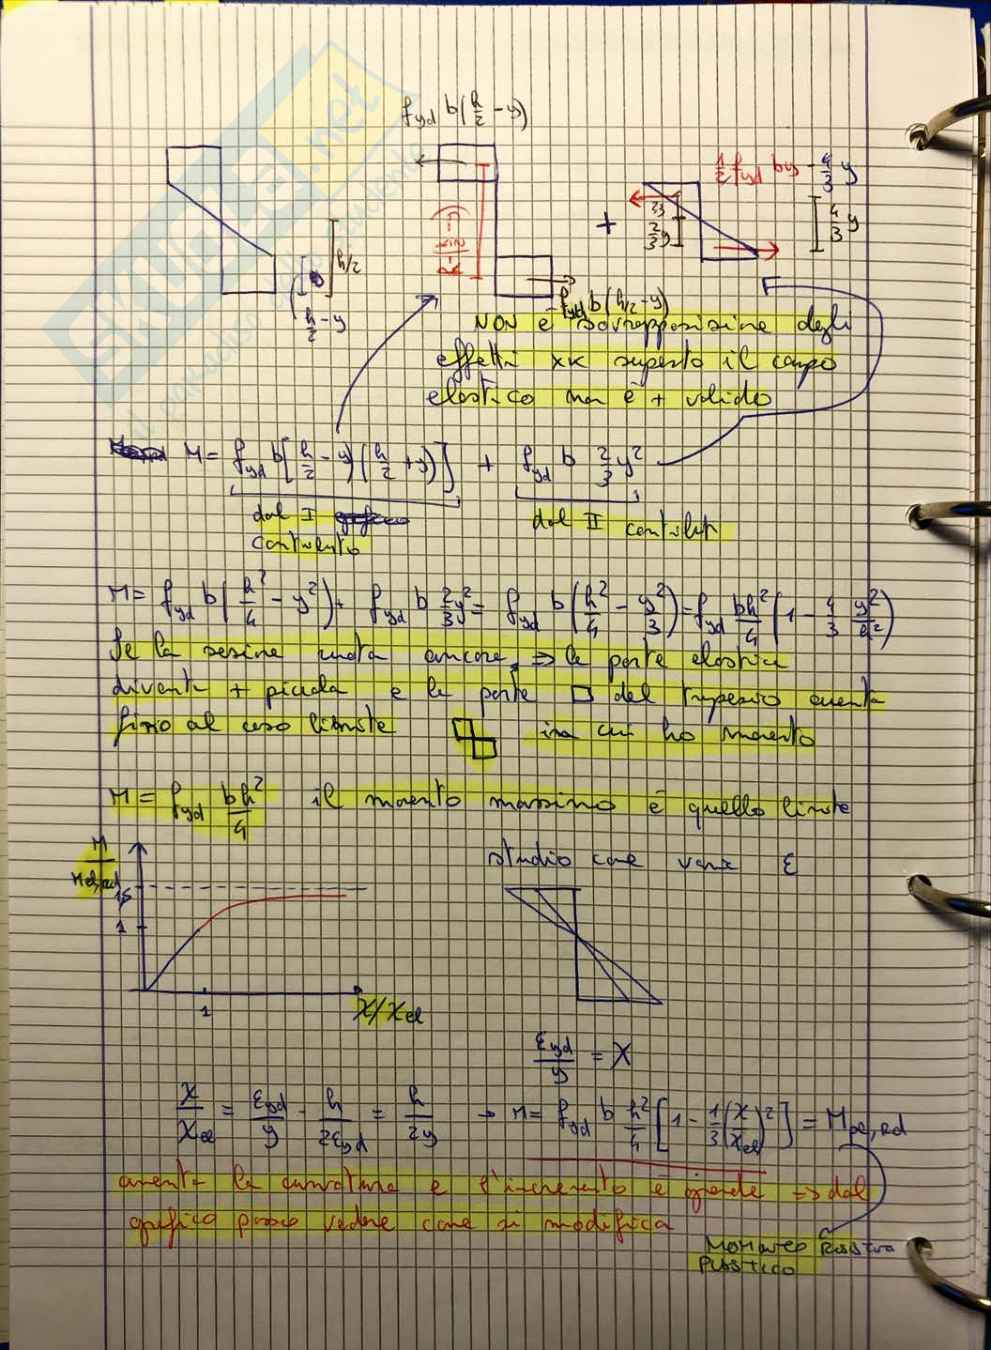 f_yd b(h/2 - y)
1/2 f_yd by · 4/3 y
2/3y
2/3y
4/3 y
+
h/2
h/2 - y
f_yd b(h/2 - y)
NON è sovrapposizione degli
effetti xk superato il campo
elastico non è + valido
M = f_yd b[(h/2 - y)(h/2 + y)] + f_yd b 2/3 y²
dal I
contributo
dal II contribut
M = f_yd b(h²/4 - y²) + f_yd b 2/3 y² = f_yd b(h²/4 - y²/3) = f_yd bh²/4 (1 - 4/3 y²/h²)
Se la sezione ruota ancora, ⇒ la parte elastica
diventa + piccola e la parte □ del trapezio aumenta
fino al caso limite in cui ho momento
M = f_yd bh²/4 il momento massimo è quello limite
M/Mel,rd
studio come varia ε
1,5
1
1
X/Xel
ε_yd/y = X
X/Xel = ε_yd/y · h/2ε_yd = h/2y → M = f_yd b h²/4 [1 - 1/3 (X/Xel)²] = Mpl,rd
aumenta la curvatura e l'incremento è grande ⇒ dal
grafico posso vedere come si modifica
MOMENTO RESISTENTE
PLASTICO